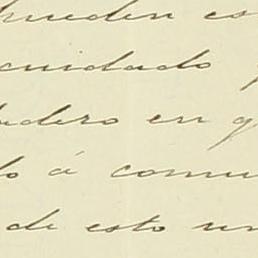 pueden es
cuidado
dero en q
do á comu
de esto un